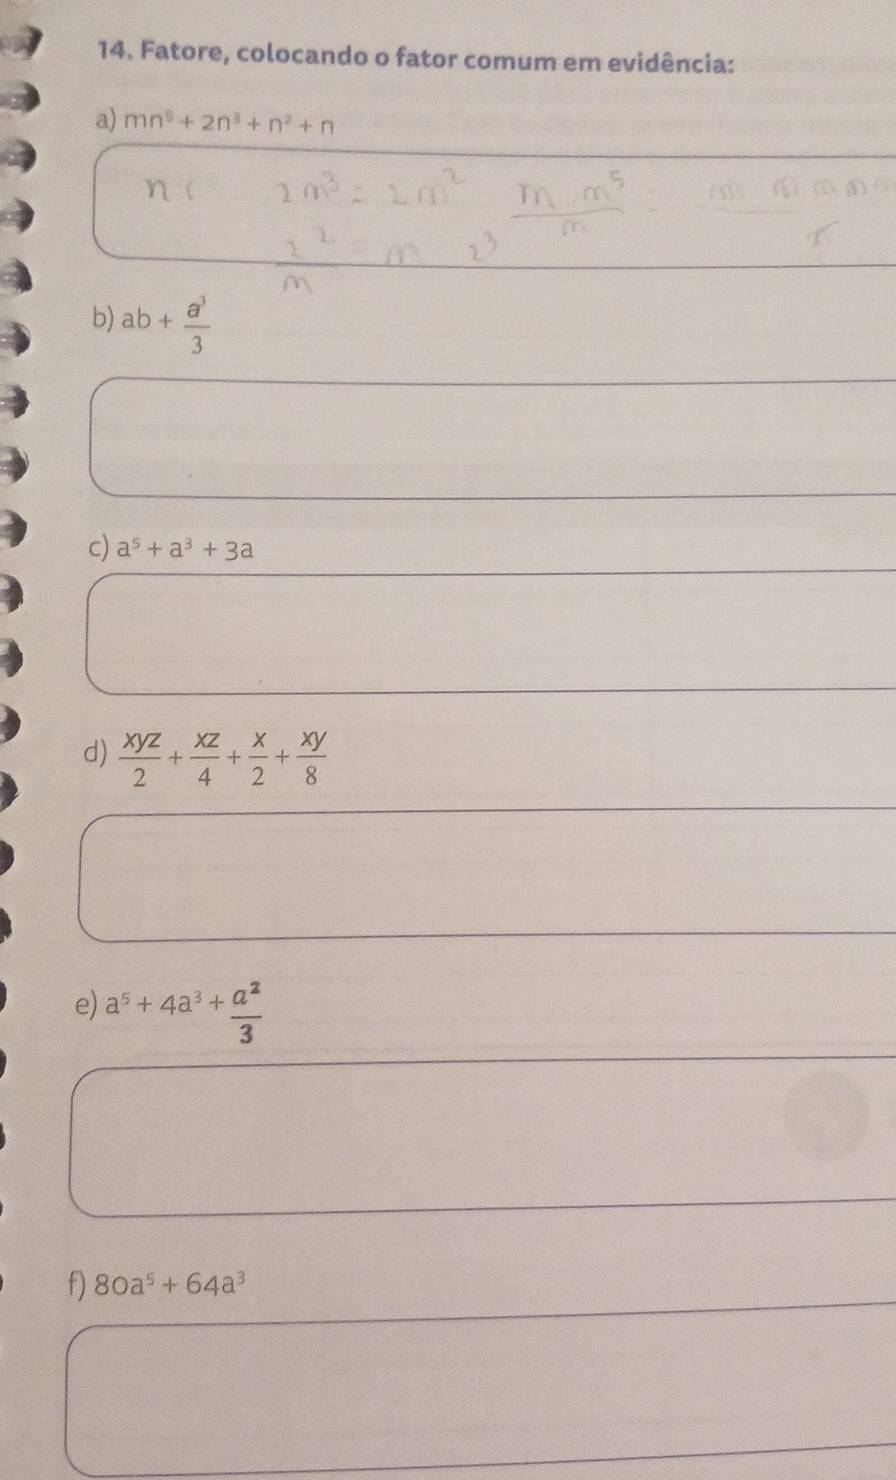 14. Fatore, colocando o fator comum em evidência:
a) mn⁵ + 2n³ + n² + n
n (
2m³ = 2m²
m m⁵ / m =
b) ab + a³/3
c) a⁵ + a³ + 3a
d) xyz/2 + xz/4 + x/2 + xy/8
e) a⁵ + 4a³ + a²/3
f) 80a⁵ + 64a³